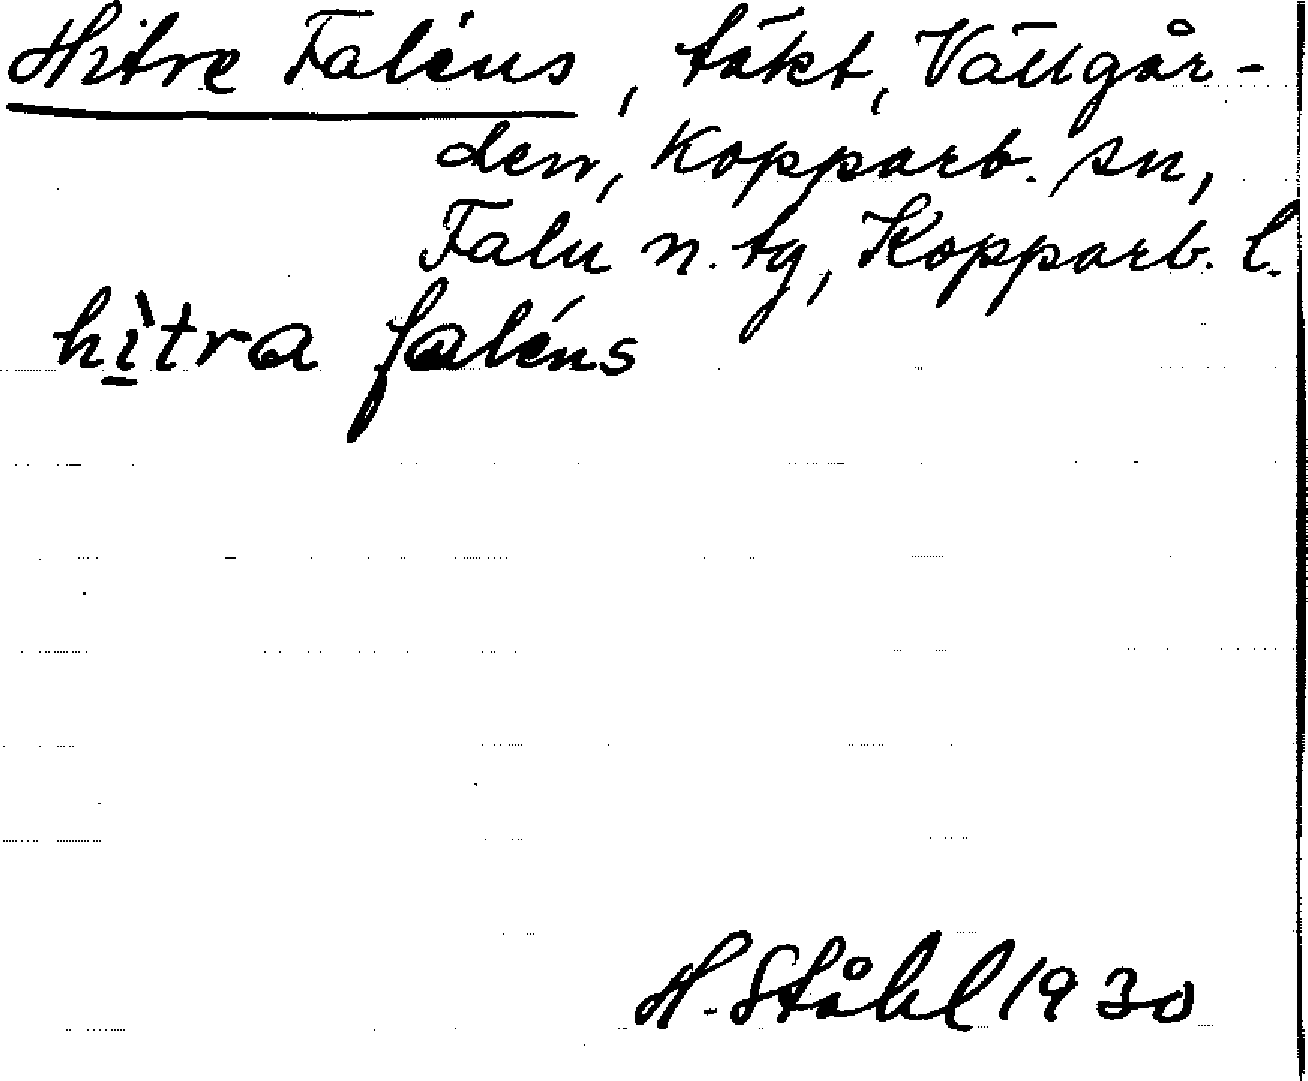 Hitre Faléns, täkt, Vällgår-
den, Kopparb. sn,
Falu n. tg, Kopparb. l.
hìtra faléns
H. Ståhl 1930